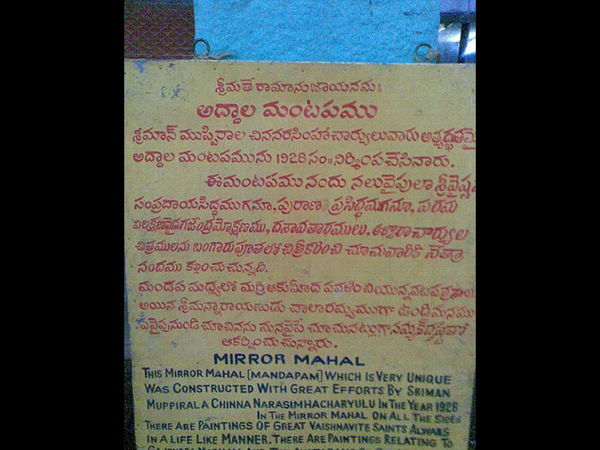 శ్రీమతే రామానుజాయనమః
అద్దాల మంటపము
శ్రీమాన్ ముప్పిరాల చిననరసింహాచార్యులువారు
అద్దాల మంటపమును 1928 సం॥ నిర్మింపచేసినారు.
ఈమంటపము నందు నలువైపులా శ్రీవైష్ణ
సంప్రదాయసిద్ధముగనూ, పురాణ ప్రసిద్ధముగనూ, పరమ
విలక్షణమైన గజేంద్రమోక్షణము, దశావతారములు, ఆళ్వారాచార్యుల
చిత్రములను బంగారుపూతలో చిత్రీకరించి చూచువారికి నేత్రా
నందము కల్గించుచున్నది.
మండప మధ్యలో మర్రి ఆకుమీద పవళించియున్న
అయిన శ్రీమన్నారాయణుడు చాలారమ్యముగా ఉండి మనము
ఏవైపునుండి చూచినను మనవైపే చూచునట్లుగా
ఆకర్షించుచున్నారు.
MIRROR MAHAL
THIS MIRROR MAHAL [MANDAPAM] WHICH IS VERY UNIQUE
WAS CONSTRUCTED WITH GREAT EFFORTS BY SRIMAN
MUPPIRALA CHINNA NARASIMHACHARYULU IN THE YEAR 1928
IN THE MIRROR MAHAL ON ALL THE SIDES
THERE ARE PAINTINGS OF GREAT VAISHNAVITE SAINTS ALWARS
IN A LIFE LIKE MANNER. THERE ARE PAINTINGS RELATING TO